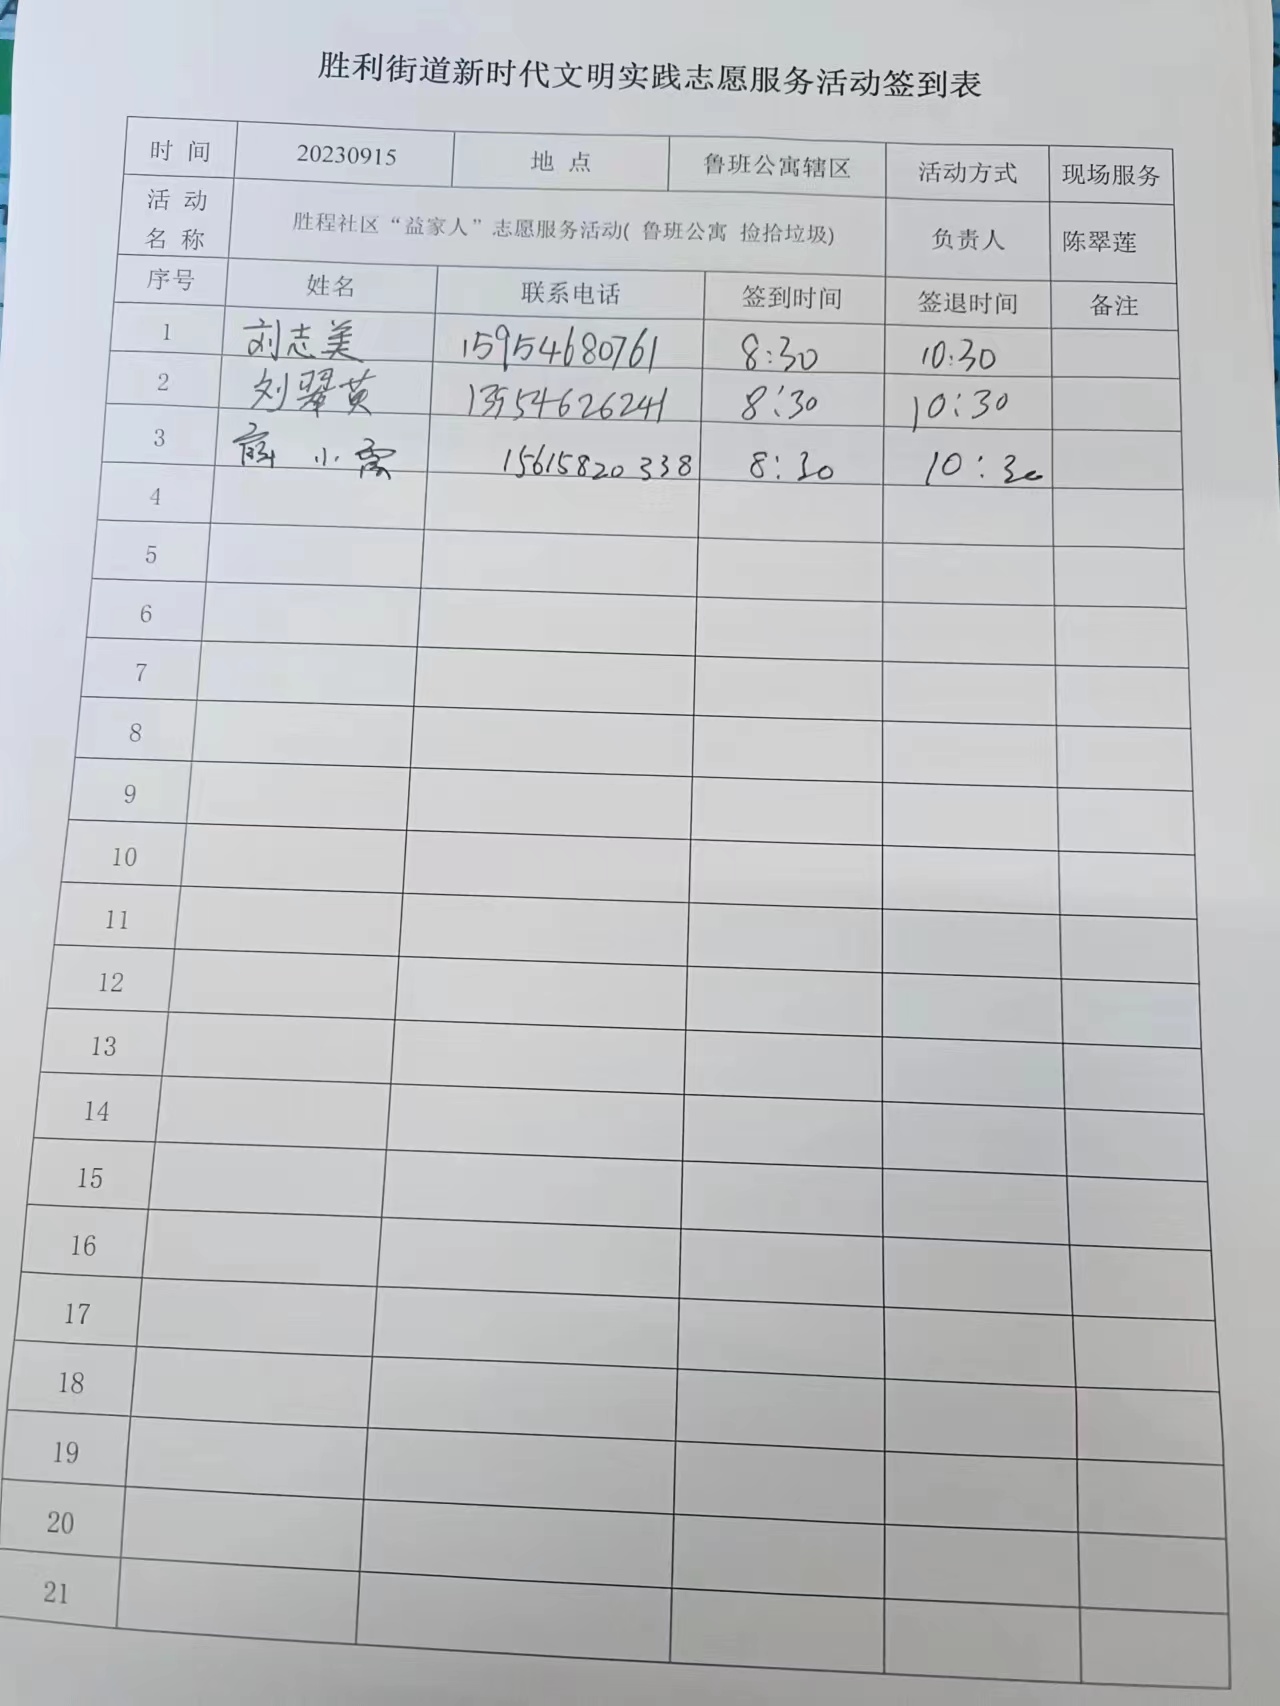 胜利街道新时代文明实践志愿服务活动签到表
时 间 20230915 地 点 鲁班公寓辖区 活动方式 现场服务
活 动 名 称 胜程社区“益家人”志愿服务活动( 鲁班公寓 捡拾垃圾) 负责人 陈翠莲
序号 姓名 联系电话 签到时间 签退时间 备注
1 刘志美 15954680761 8:30 10:30
2 刘翠黄 13954626241 8:30 10:30
3 小霞 15615820338 8:30 10:30
4
5
6
7
8
9
10
11
12
13
14
15
16
17
18
19
20
21